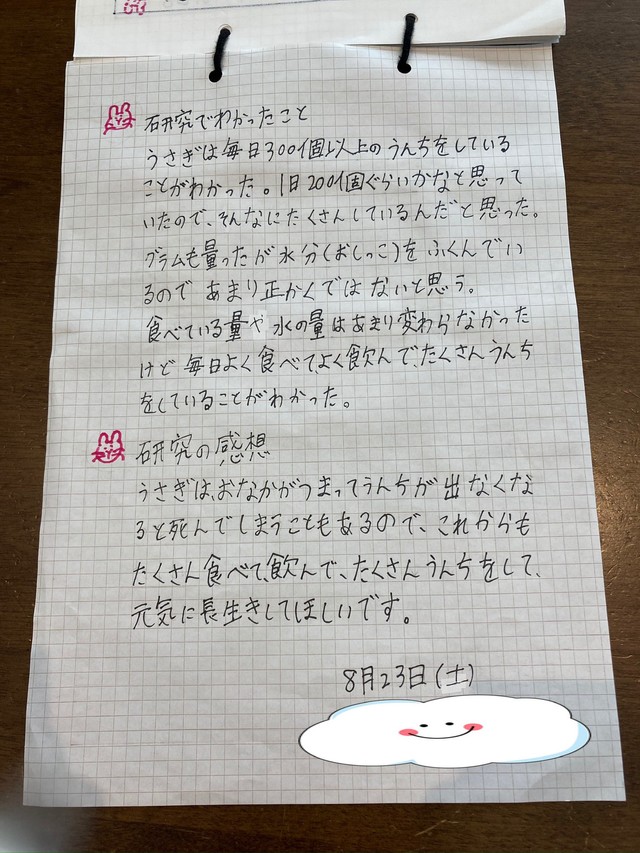 研究でわかったこと
うさぎは毎日300個以上のうんちをしている
ことがわかった。1日200個ぐらいかなと思って
いたので、そんなにたくさんしているんだと思った。
グラムも量ったが水分(おしっこ)をふくんでい
るので あまり正かくではないと思う。
食べている量や水の量はあまり変わらなかった
けど毎日よく食べてよく飲んで、たくさんうんち
をしていることがわかった。
研究の感想
うさぎは、おなかがつまってうんちが出なくな
ると死んでしまうこともあるので、これからも
たくさん食べて、飲んで、たくさんうんちをして、
元気に長生きしてほしいです。
8月23日(土)